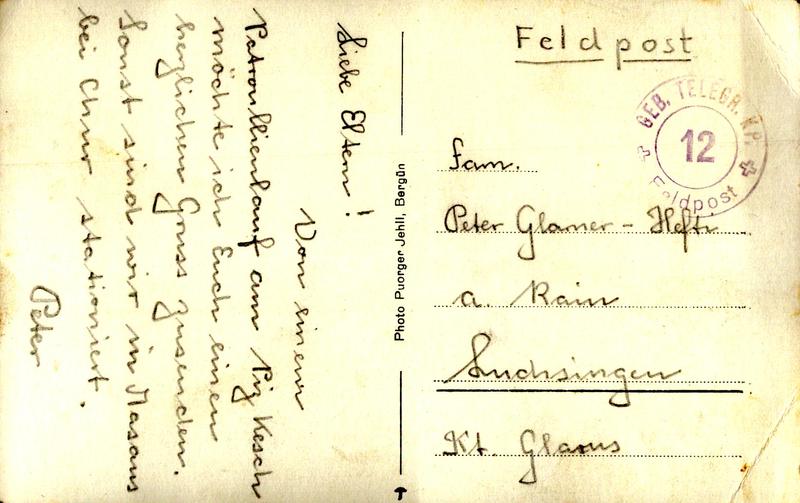 Liebe Eltern!
Von einem
Patroullienlauf am Piz Kesch
möchte ich Euch einen
herzlichen Gruss zusenden.
Sonst sind wir in Masans
bei Chur stationiert.
Peter
Photo Puorger Jehli, Bergün
Feldpost
GEB. TELEGR. KP.
12
Feldpost
Fam.
Peter Glarner - Hefti
a. Rain
Luchsingen
Kt. Glarus